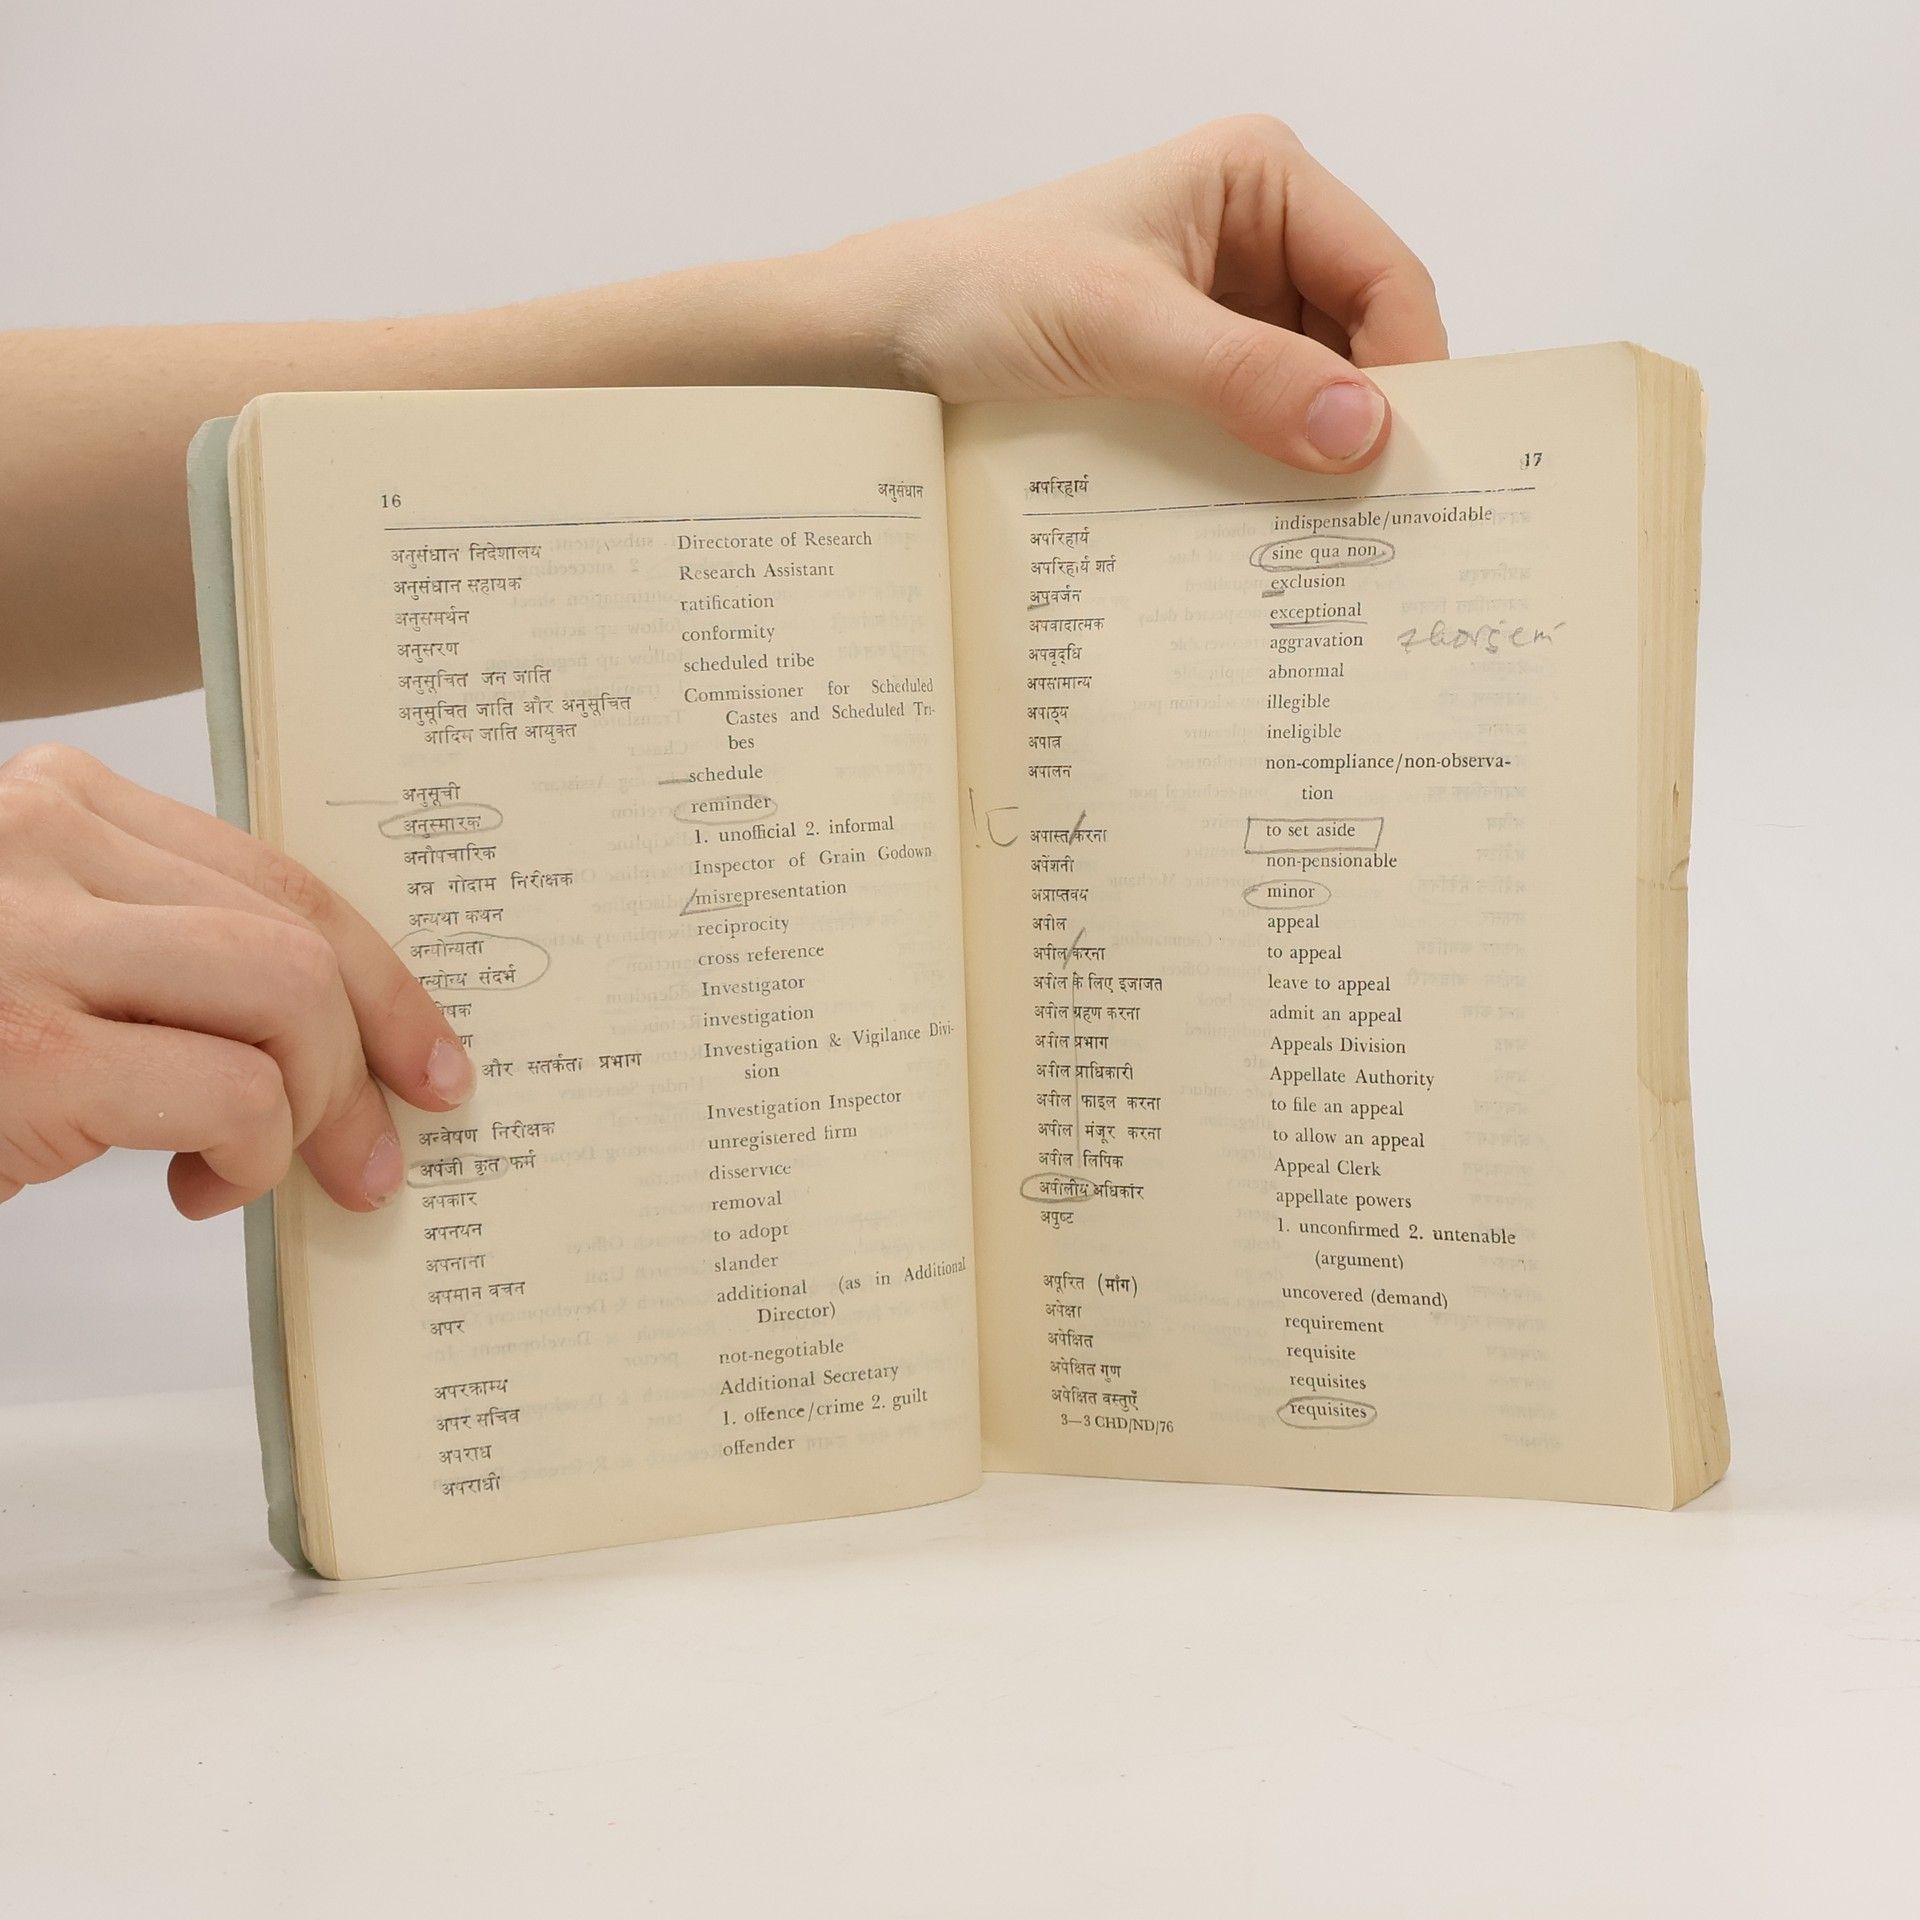 16 अनुसंधान
अनुसंधान निदेशालय Directorate of Research
अनुसंधान सहायक Research Assistant
अनुसमर्थन ratification
अनुसरण conformity
अनुसूचित जन जाति scheduled tribe
अनुसूचित जाति और अनुसूचित Commissioner for Scheduled
आदिम जाति आयुक्त Castes and Scheduled Tri-
bes
अनुसूची schedule
अनुस्मारक reminder
अनौपचारिक 1. unofficial 2. informal
अन्न गोदाम निरीक्षक Inspector of Grain Godown
अन्यथा कथन misrepresentation
अन्योन्यता reciprocity
अन्योन्य संदर्भ cross reference
Investigator
investigation
और सतर्कता प्रभाग Investigation & Vigilance Divi-
sion
अन्वेषण निरीक्षक Investigation Inspector
अपंजी कृत फर्म unregistered firm
अपकार disservice
अपनयन removal
अपनाना to adopt
अपमान वचन slander
अपर additional (as in Additional
Director)
अपरक्राम्य not-negotiable
अपर सचिव Additional Secretary
अपराध 1. offence/crime 2. guilt
अपराधी offender
अपरिहार्य 17
अपरिहार्य indispensable/unavoidable
अपरिहार्य शर्त sine qua non
अपवर्जन exclusion
अपवादात्मक exceptional
अपवृद्धि aggravation
अपसामान्य abnormal
अपाठ्य illegible
अपात्र ineligible
अपालन non-compliance/non-observa-
tion
अपास्त करना to set aside
अपेंशनी non-pensionable
अप्राप्तवय minor
अपील appeal
अपील करना to appeal
अपील के लिए इजाजत leave to appeal
अपील ग्रहण करना admit an appeal
अपील प्रभाग Appeals Division
अपील प्राधिकारी Appellate Authority
अपील फाइल करना to file an appeal
अपील मंजूर करना to allow an appeal
अपील लिपिक Appeal Clerk
अपीलीय अधिकार appellate powers
अपुष्ट 1. unconfirmed 2. untenable
(argument)
अपूरित (माँग) uncovered (demand)
अपेक्षा requirement
अपेक्षित requisite
अपेक्षित गुण requisites
अपेक्षित वस्तुएँ requisites
3—3 CHD/ND/76